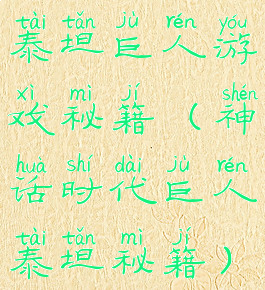 tài tǎn jù rén yóu
泰坦巨人游
xì mì jí shén
戏秘籍（神
huà shí dài jù rén
话时代巨人
tài tǎn mì jí
泰坦秘籍）